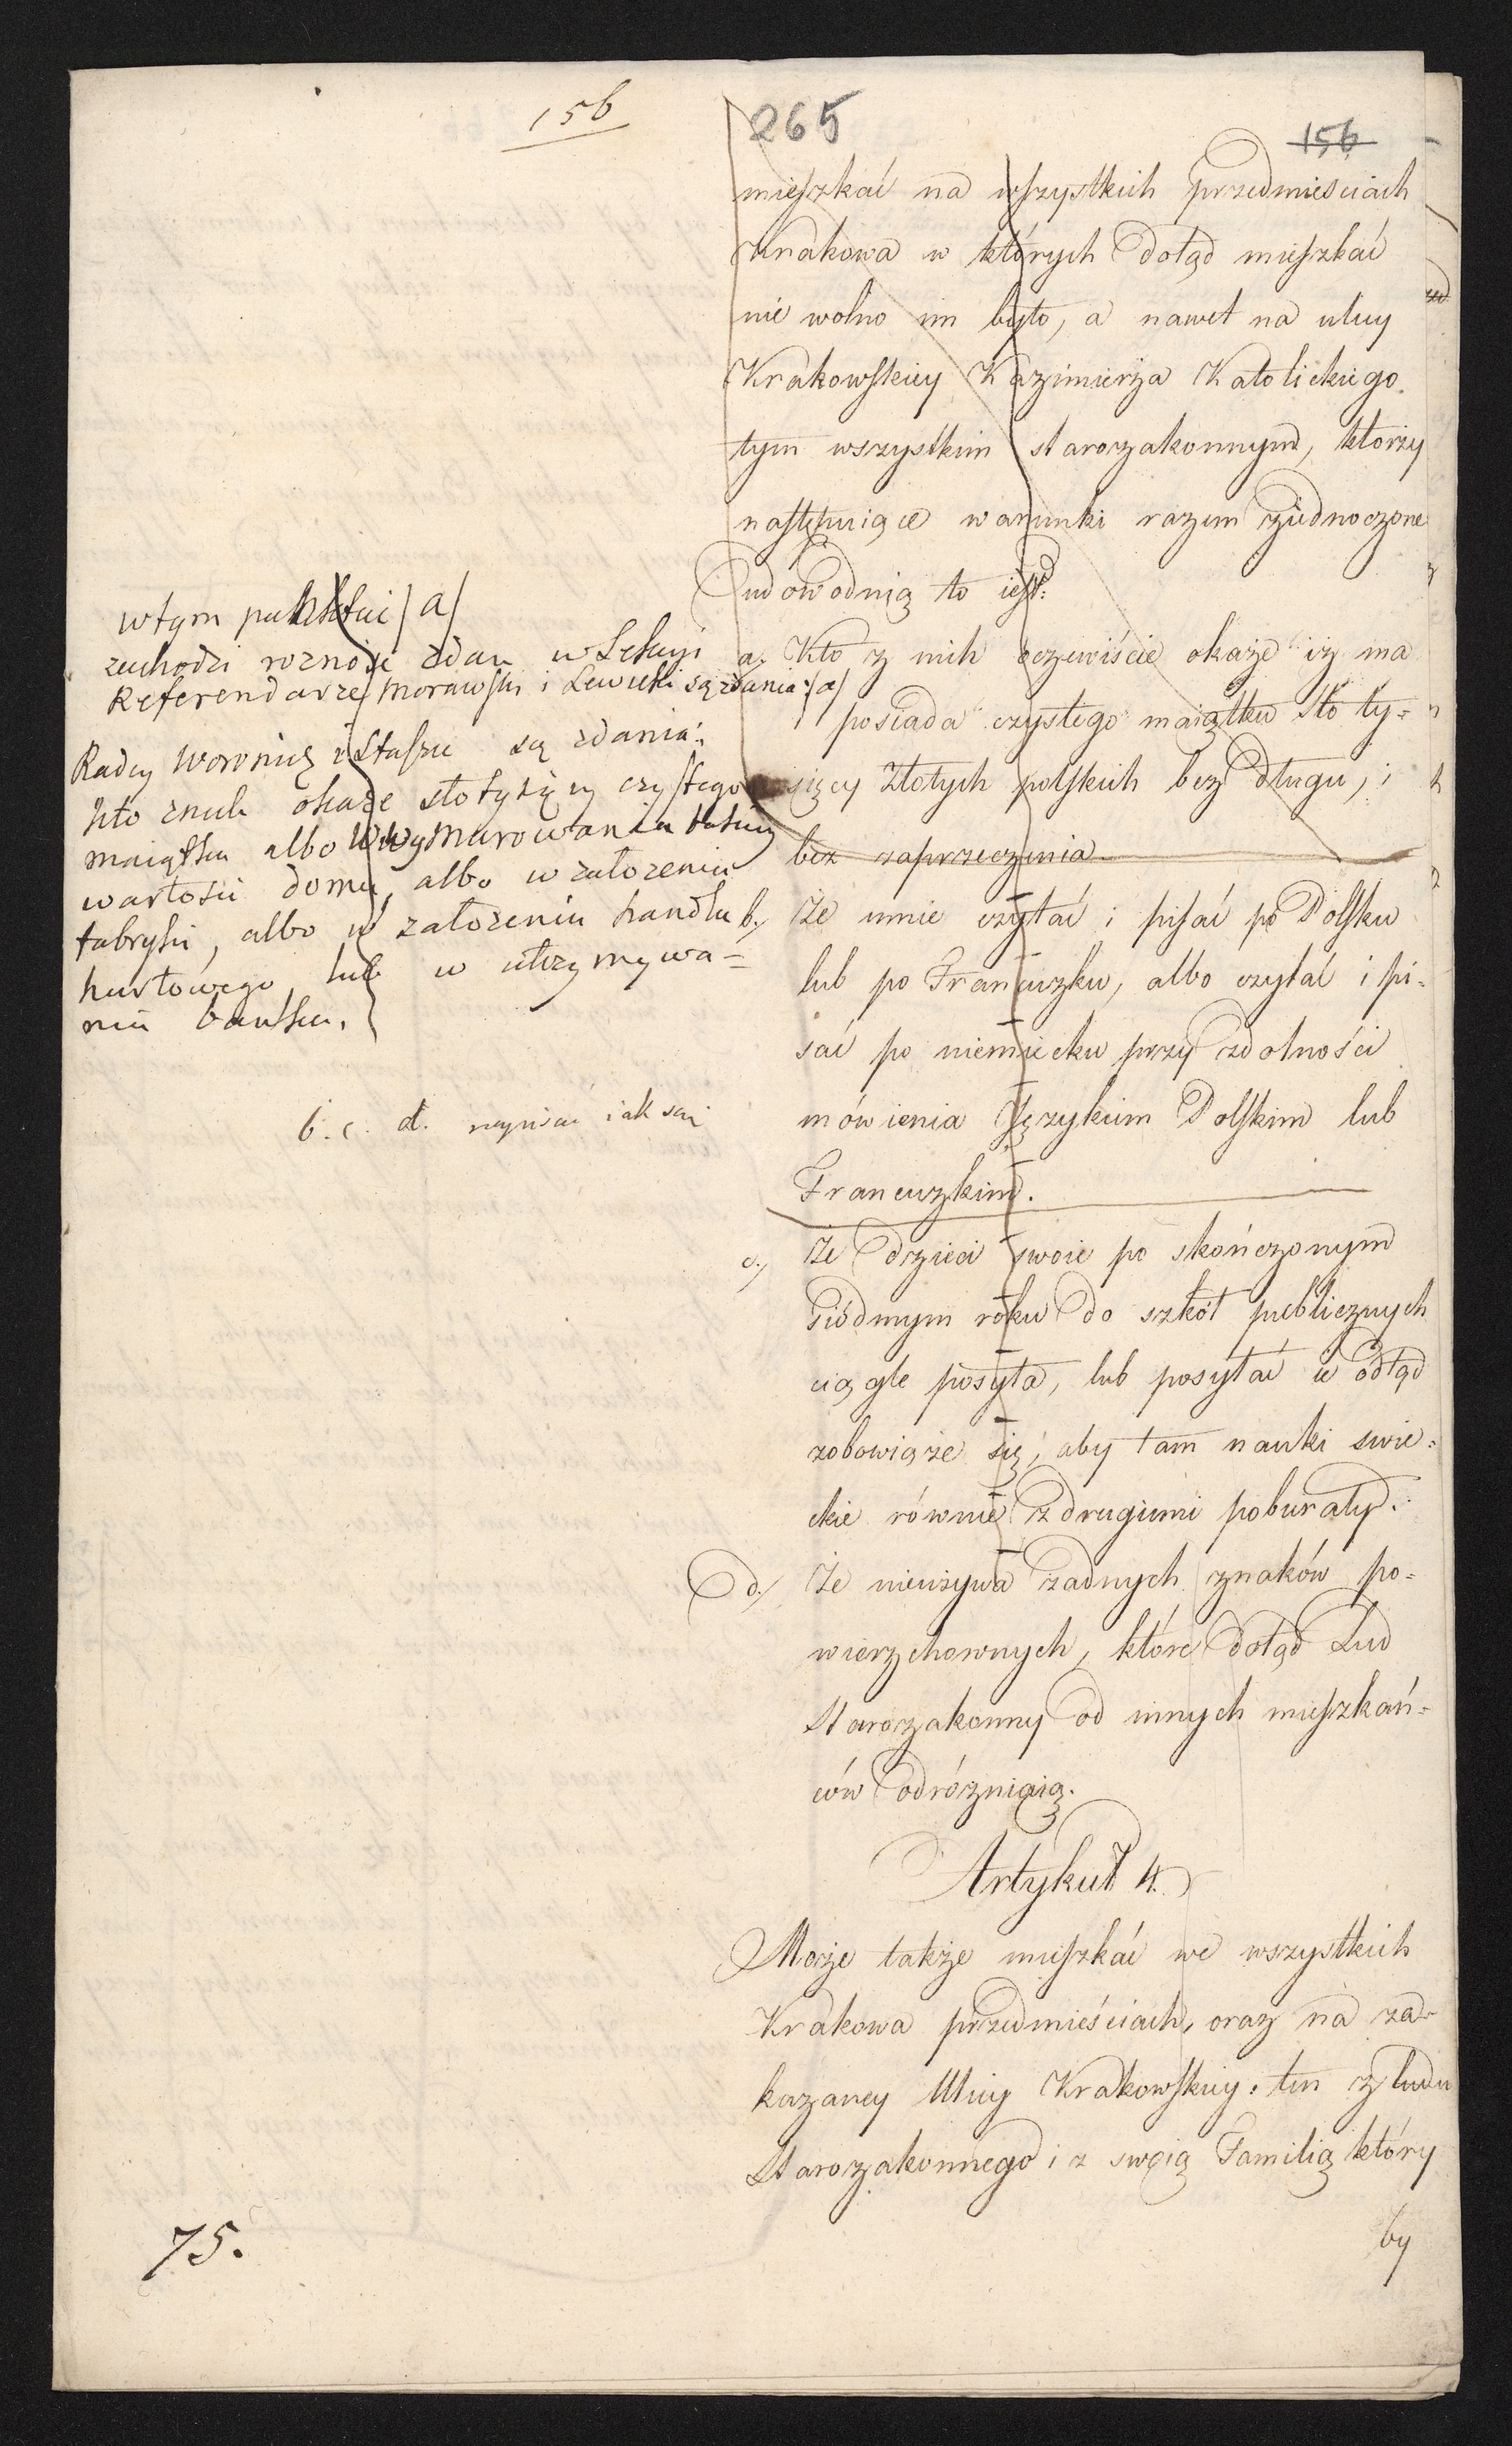 156
265
156
mieszkać na wszystkich przedmieściach
Krakowa w których dotąd mieszkać
nie wolno im było, a nawet na ulicy
Krakowskiey Kazimierza Katolickiego.
tym wszystkim starozakonnym, którzy
następuiące warunki razem ziednoczone
udowodnią to iest:
a. Kto z nich oczewiście okaże iż ma
posiada czystego maiątku sto ty=
sięcy Złotych polskich bez długu, i
bez zaprzeczenia.
b./ Że umie czytać i pisać po Polsku
lub po Francuzku, albo czytać i pi=
sać po niemiecku przy zdolności
mówienia Językiem Polskim lub
Francuzkim.
c./ Że dzieci swoie po skończonym
siódmym roku do szkół publicznych
ciągle posyła, lub posyłać ie odtąd
zobowiąże się, aby tam nauki swie=
ckie równie z drugiemi pobierały.
d./ Że nieużywa żadnych znaków po=
wierzchownych, które dotąd Lud
Starozakonny od innych mieszkań=
ców odróżniaią.
Artykuł 4.
Może także mieszkać we wszystkich
Krakowa przedmieściach, oraz na za=
kazaney Ulicy Krakowskiey: ten z ludu
Starozakonnego i z swoią Familią który
by
w tym punkcie /a/
zachodzi rożność zdań w Sekcyi
Referendarze Morawski i Lewicki są zdania: /a/
Radcy Woronicz i Staszic są zdania:
Kto z nich okaże sto tysięcy czystego
maiątku albo w wymurowaniu takiey
wartości domu, albo w założeniu
fabryki, albo w założeniu handlu
hurtowego lub w utrzymywa=
niu banku.
b. c. d. napisać iak są
75.